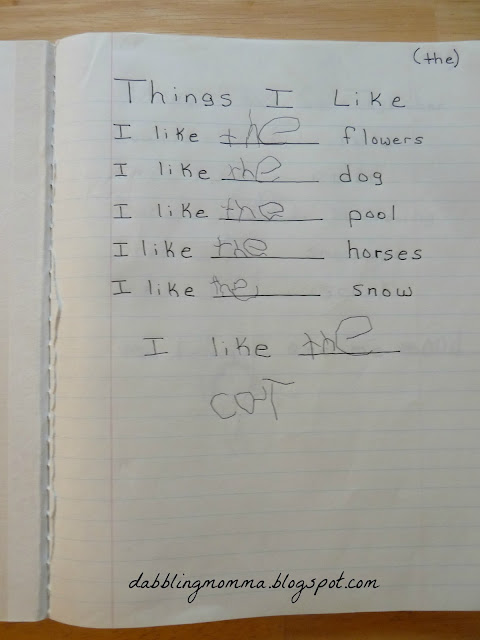 (the)
Things I Like
I like the flowers
I like the dog
I like the pool
I like the horses
I like the snow
I like the
caT
dabblingmomma.blogspot.com